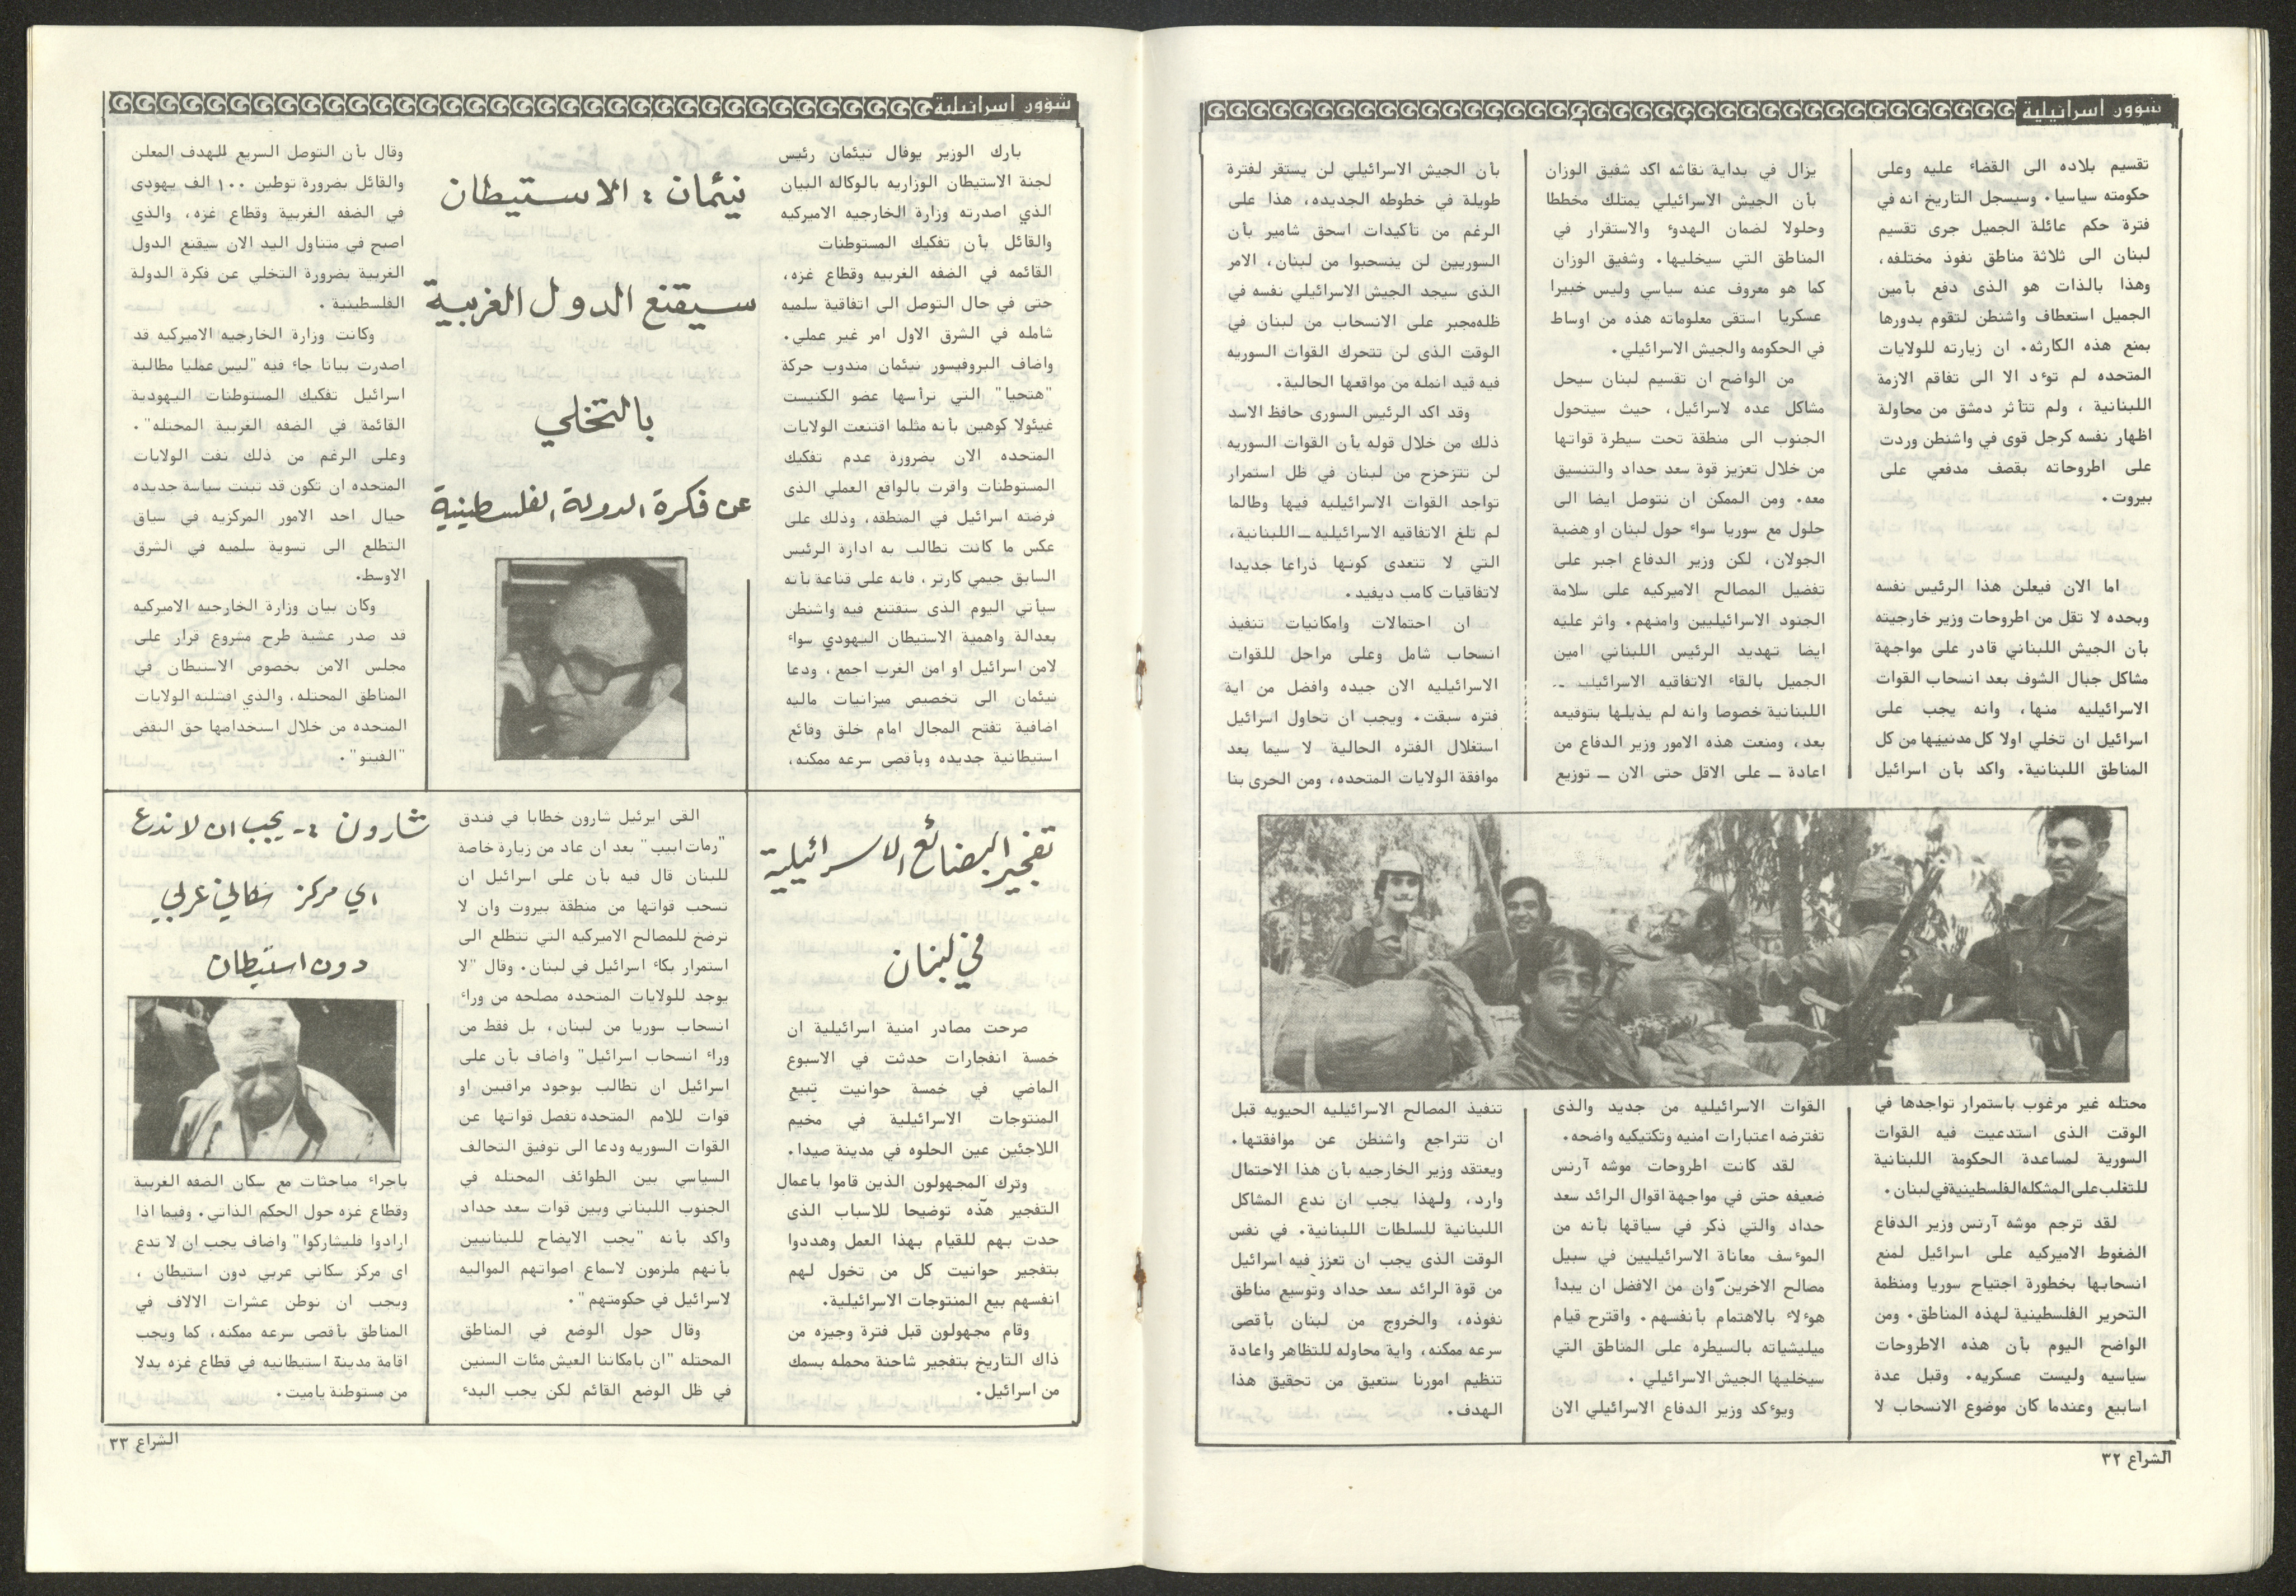 شؤون اسرائيلية
تقسيم بلاده الى القضاء عليه وعلى
حكومته سياسيا. وسيسجل التاريخ انه في
فترة حكم عائلة الجميل جرى تقسيم
لبنان الى ثلاثة مناطق نفوذ مختلفه،
وهذا بالذات هو الذى دفع بأمين
الجميل استعطاف واشنطن لتقوم بدورها
بمنع هذه الكارثه. ان زيارته للولايات
المتحده لم توءد الا الى تفاقم الازمة
اللبنانية ، ولم تتأثر دمشق من محاولة
اظهار نفسه كرجل قوى في واشنطن وردت
على اطروحاته بقصف مدفعي على
بيروت.
اما الان فيعلن هذا الرئيس نفسه
وبحده لا تقل من اطروحات وزير خارجيته
بأن الجيش اللبناني قادر على مواجهة
مشاكل جبال الشوف بعد انسحاب القوات
الاسرائيليه منها، وانه يجب على
اسرائيل ان تخلي اولا كل مدنييها من كل
المناطق اللبنانية. واكد بأن اسرائيل
محتله غير مرغوب باستمرار تواجدها في
الوقت الذى استدعيت فيه القوات
السورية لمساعدة الحكومة اللبنانية
للتغلب على المشكله الفلسطينية في لبنان.
لقد ترجم موشه آرنس وزير الدفاع
الضغوط الاميركيه على اسرائيل لمنع
انسحابها بخطورة اجتياح سوريا ومنظمة
التحرير الفلسطينية لهذه المناطق. ومن
الواضح اليوم بأن هذه الاطروحات
سياسيه وليست عسكريه. وقبل عدة
اسابيع وعندما كان موضوع الانسحاب لا
يزال في بداية نقاشه اكد شفيق الوزان
بأن الجيش الاسرائيلي يمتلك مخططا
وحلولا لضمان الهدوء والاستقرار في
المناطق التي سيخليها. وشفيق الوزان
كما هو معروف عنه سياسي وليس خبيرا
عسكريا استقى معلوماته هذه من اوساط
في الحكومه والجيش الاسرائيلي.
من الواضح ان تقسيم لبنان سيحل
مشاكل عده لاسرائيل، حيث سيتحول
الجنوب الى منطقة تحت سيطرة قواتها
من خلال تعزيز قوة سعد حداد والتنسيق
معه. ومن الممكن ان نتوصل ايضا الى
حلول مع سوريا سواء حول لبنان او هضبة
الجولان، لكن وزير الدفاع اجبر على
تفضيل المصالح الاميركيه على سلامة
الجنود الاسرائيليين وامنهم. واثر عليه
ايضا تهديد الرئيس اللبناني امين
الجميل بالقاء الاتفاقيه الاسرائيليه ــ
اللبنانية خصوصا وانه لم يذيلها بتوقيعه
بعد، ومنعت هذه الامور وزير الدفاع من
اعادة ــ على الاقل حتى الان ــ توزيع
القوات الاسرائيليه من جديد والذى
تفترضه اعتبارات امنيه وتكتيكيه واضحه.
لقد كانت اطروحات موشه آرنس
ضعيفه حتى في مواجهة اقوال الرائد سعد
حداد والتي ذكر في سياقها بأنه من
الموءسف معاناة الاسرائيليين في سبيل
مصالح الاخرين وان من الافضل ان يبدأ
هوءلاء بالاهتمام بأنفسهم. واقترح قيام
ميليشياته بالسيطره على المناطق التي
سيخليها الجيش الاسرائيلي .
ويوءكد وزير الدفاع الاسرائيلي الان
بأن الجيش الاسرائيلي لن يستقر لفترة
طويلة في خطوطه الجديده، هذا على
الرغم من تأكيدات اسحق شامير بأن
السوريين لن ينسحبوا من لبنان، الامر
الذى سيجد الجيش الاسرائيلي نفسه في
ظله مجبر على الانسحاب من لبنان في
الوقت الذى لن تتحرك القوات السوريه
فيه قيد انمله من مواقعها الحالية.
وقد اكد الرئيس السورى حافظ الاسد
ذلك من خلال قوله بأن القوات السوريه
لن تتزحزح من لبنان في ظل استمرار
تواجد القوات الاسرائيليه فيها وطالما
لم تلغ الاتفاقيه الاسرائيليه ــ اللبنانية،
التي لا تتعدى كونها ذراعا جديدا
لاتفاقيات كامب ديفيد.
ان احتمالات وامكانيات تنفيذ
انسحاب شامل وعلى مراحل للقوات
الاسرائيليه الان جيده وافضل من اية
فتره سبقت. ويجب ان تحاول اسرائيل
استغلال الفتره الحالية لا سيما بعد
موافقة الولايات المتحده، ومن الحرى بنا
تنفيذ المصالح الاسرائيليه الحيويه قبل
ان تتراجع واشنطن عن موافقتها.
ويعتقد وزير الخارجيه بأن هذا الاحتمال
وارد، ولهذا يجب ان ندع المشاكل
اللبنانية للسلطات اللبنانية. في نفس
الوقت الذى يجب ان تعزز فيه اسرائيل
من قوة الرائد سعد حداد وتوسيع مناطق
نفوذه، والخروج من لبنان بأقصى
سرعه ممكنه، واية محاوله للتظاهر واعادة
تنظيم امورنا ستعيق من تحقيق هذا
الهدف.
الشراع ٣٢
شؤون اسرائيلية
نيئمان : الاستيطان
سيقنع الدول الغربية
بالتخلي
عن فكرة الدولة الفلسطينية
بارك الوزير يوفال نيئمان رئيس
لجنة الاستيطان الوزاريه بالوكاله البيان
الذي اصدرته وزارة الخارجيه الاميركيه
والقائل بأن تفكيك المستوطنات
القائمه في الضفه الغربيه وقطاع غزه،
حتى في حال التوصل الى اتفاقية سلميه
شامله في الشرق الاول امر غير عملي.
واضاف البروفيسور نيئمان مندوب حركة
"هتحيا" التي ترأسها عضو الكنيست
غيئولا كوهين بأنه مثلما اقتنعت الولايات
المتحده الان بضرورة عدم تفكيك
المستوطنات واقرت بالواقع العملي الذى
فرضته اسرائيل في المنطقه، وذلك على
عكس ما كانت تطالب به ادارة الرئيس
السابق جيمي كارتر، فانه على قناعة بأنه
سيأتي اليوم الذى ستقتنع فيه واشنطن
بعدالة واهمية الاستيطان اليهودي سواء
لامن اسرائيل او امن الغرب اجمع، ودعا
نيئمان الى تخصيص ميزانيات ماليه
اضافية تفتح المجال امام خلق وقائع
استيطانية جديده وبأقصى سرعه ممكنه،
وقال بأن التوصل السريع للهدف المعلن
والقائل بضرورة توطين ١٠٠ الف يهودى
في الضفه الغربية وقطاع غزه، والذي
اصبح في متناول اليد الان سيقنع الدول
الغربية بضرورة التخلي عن فكرة الدولة
الفلسطينية .
وكانت وزارة الخارجيه الاميركيه قد
اصدرت بيانا جاء فيه "ليس عمليا مطالبة
اسرائيل تفكيك المستوطنات اليهودية
القائمة في الضفه الغربية المحتله".
وعلى الرغم من ذلك نفت الولايات
المتحده ان تكون قد تبنت سياسة جديده
حيال احد الامور المركزيه في سياق
التطلع الى تسوية سلميه في الشرق
الاوسط.
وكان بيان وزارة الخارجيه الاميركيه
قد صدر عشية طرح مشروع قرار على
مجلس الامن بخصوص الاستيطان في
المناطق المحتله، والذي افشلته الولايات
المتحده من خلال استخدامها حق النقض
"الفيتو".
تفجير البضائع الاسرائيلية
في لبنان
صرحت مصادر امنية اسرائيلية ان
خمسة انفجارات حدثت في الاسبوع
الماضي في خمسة حوانيت تبيع
المنتوجات الاسرائيلية في مخيم
اللاجئين عين الحلوه في مدينة صيدا.
وترك المجهولون الذين قاموا باعمال
التفجير هذه توضيحا للاسباب الذى
حدت بهم للقيام بهذا العمل وهددوا
بتفجير حوانيت كل من تخول لهم
انفسهم بيع المنتوجات الاسرائيلية.
وقام مجهولون قبل فترة وجيزه من
ذاك التاريخ بتفجير شاحنة محمله بسمك
من اسرائيل.
شارون :- يجب ان لا ندع
اي مركز سكاني عربي
دون استيطان
القى ايرئيل شارون خطابا في فندق
"رمات ابيب" بعد ان عاد من زيارة خاصة
للبنان قال فيه بأن على اسرائيل ان
تسحب قواتها من منطقة بيروت وان لا
ترضخ للمصالح الاميركيه التي تتطلع الى
استمرار بكاء اسرائيل في لبنان. وقال "لا
يوجد للولايات المتحده مصلحه من وراء
انسحاب سوريا من لبنان، بل فقط من
وراء انسحاب اسرائيل" واضاف بأن على
اسرائيل ان تطالب بوجود مراقبين او
قوات للامم المتحده تفصل قواتها عن
القوات السوريه ودعا الى توفيق التحالف
السياسي بين الطوائف المحتله في
الجنوب اللبناني وبين قوات سعد حداد
واكد بأنه "يجب الايضاح للبنانيين
بأنهم ملزمون لاسماع اصواتهم المواليه
لاسرائيل في حكومتهم".
وقال حول الوضع في المناطق
المحتله "ان بامكاننا العيش مئات السنين
في ظل الوضع القائم لكن يجب البدء
باجراء مباحثات مع سكان الضفه الغربية
وقطاع غزه حول الحكم الذاتي. وفيما اذا
ارادوا فليشاركوا" واضاف يجب ان لا ندع
اى مركز سكاني عربي دون استيطان ،
ويجب ان نوطن عشرات الالاف في
المناطق بأقصى سرعه ممكنه، كما ويجب
اقامة مدينة استيطانيه في قطاع غزه بدلا
من مستوطنة ياميت.
الشراع ٣٣